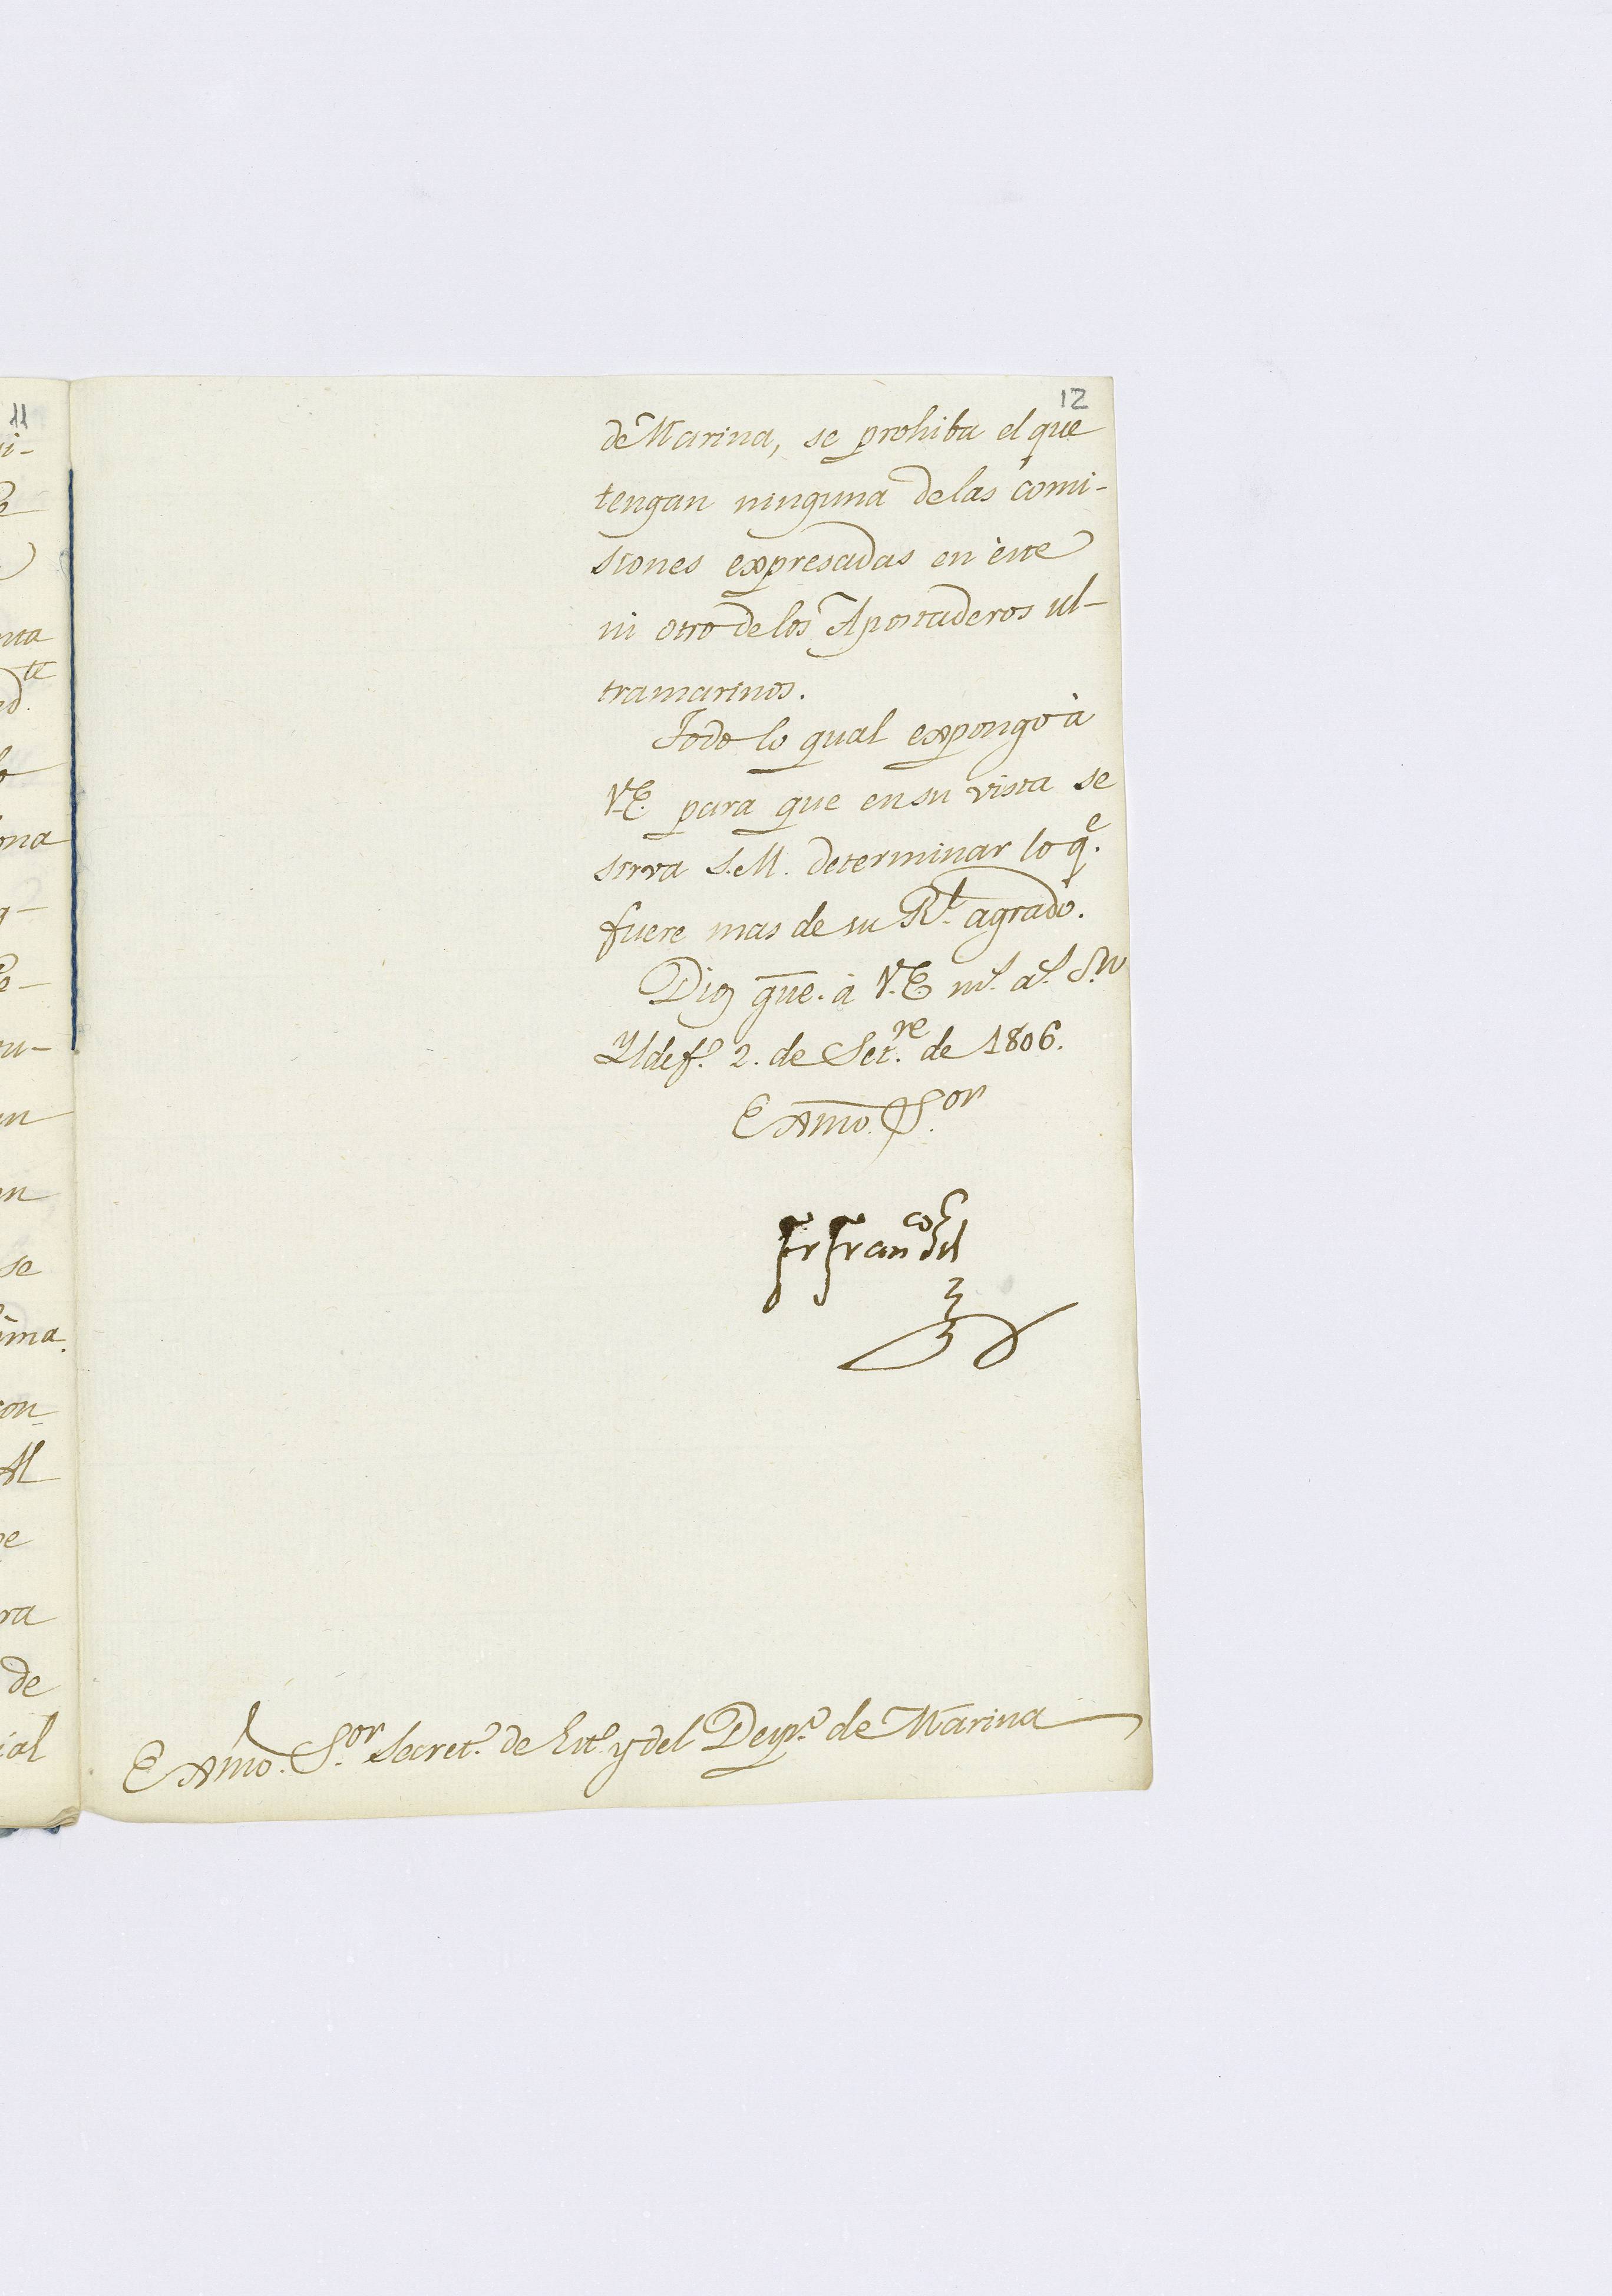 12
de Marina, se prohiba el que
tengan ninguna de las comi-
siones expresadas en èste
ni otro de los Apostaderos ul-
tramarinos.
Todo lo qual expongo à
V.E. para que en su vista se
sirva S.M. determinar lo q.e
fuere mas de su R.l agrado.
Dios gue. à V.E m.s a.s S.n
Yldef.o 2. de Set.re de 1806.
Exmo. S.or
Fr Fran.co Gil
Exmo. S.or Secret.o de Est.o y del Desp.o de Marina
11